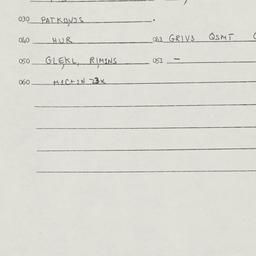 030 PATKOVJS
040 HUR 043 GRIVS QSMT
050 GLEKL, RIMINS 053 –
060